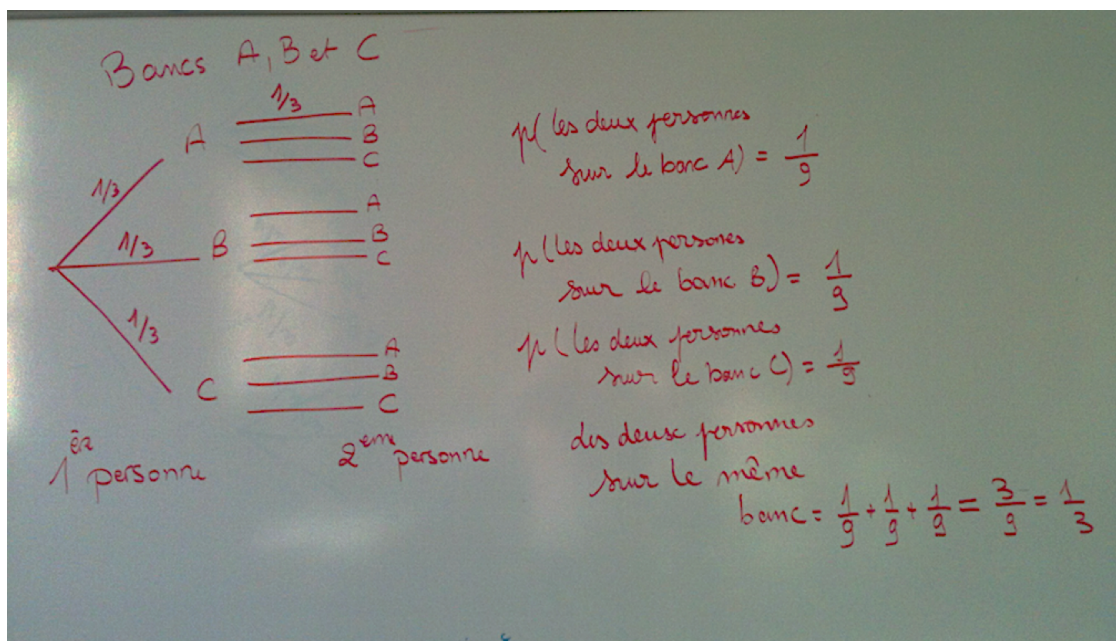 Bancs A, B et C
1/3
A
A
B
C
1/3
1/3
B
A
B
C
1/3
C
A
B
C
1ère personne
2ème personne
p( les deux personnes
sur le banc A) = 1/9
p( les deux persones
sur le banc B) = 1/9
p( les deux personnes
sur le banc C) = 1/9
des deux personnes
sur le même
banc = 1/9 + 1/9 + 1/9 = 3/9 = 1/3